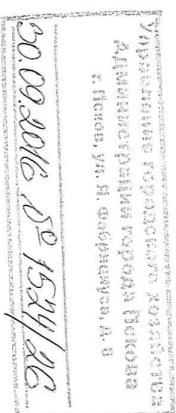 Управление городского хозяйства
Администрации города Пскова
г. Псков, ул. Я. Фабрициуса, д. 6
30.09.2016 № 1524/26